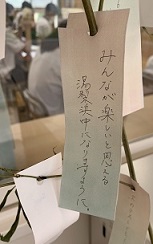 みんなが楽しいと思える
湯梨浜中になりますように。